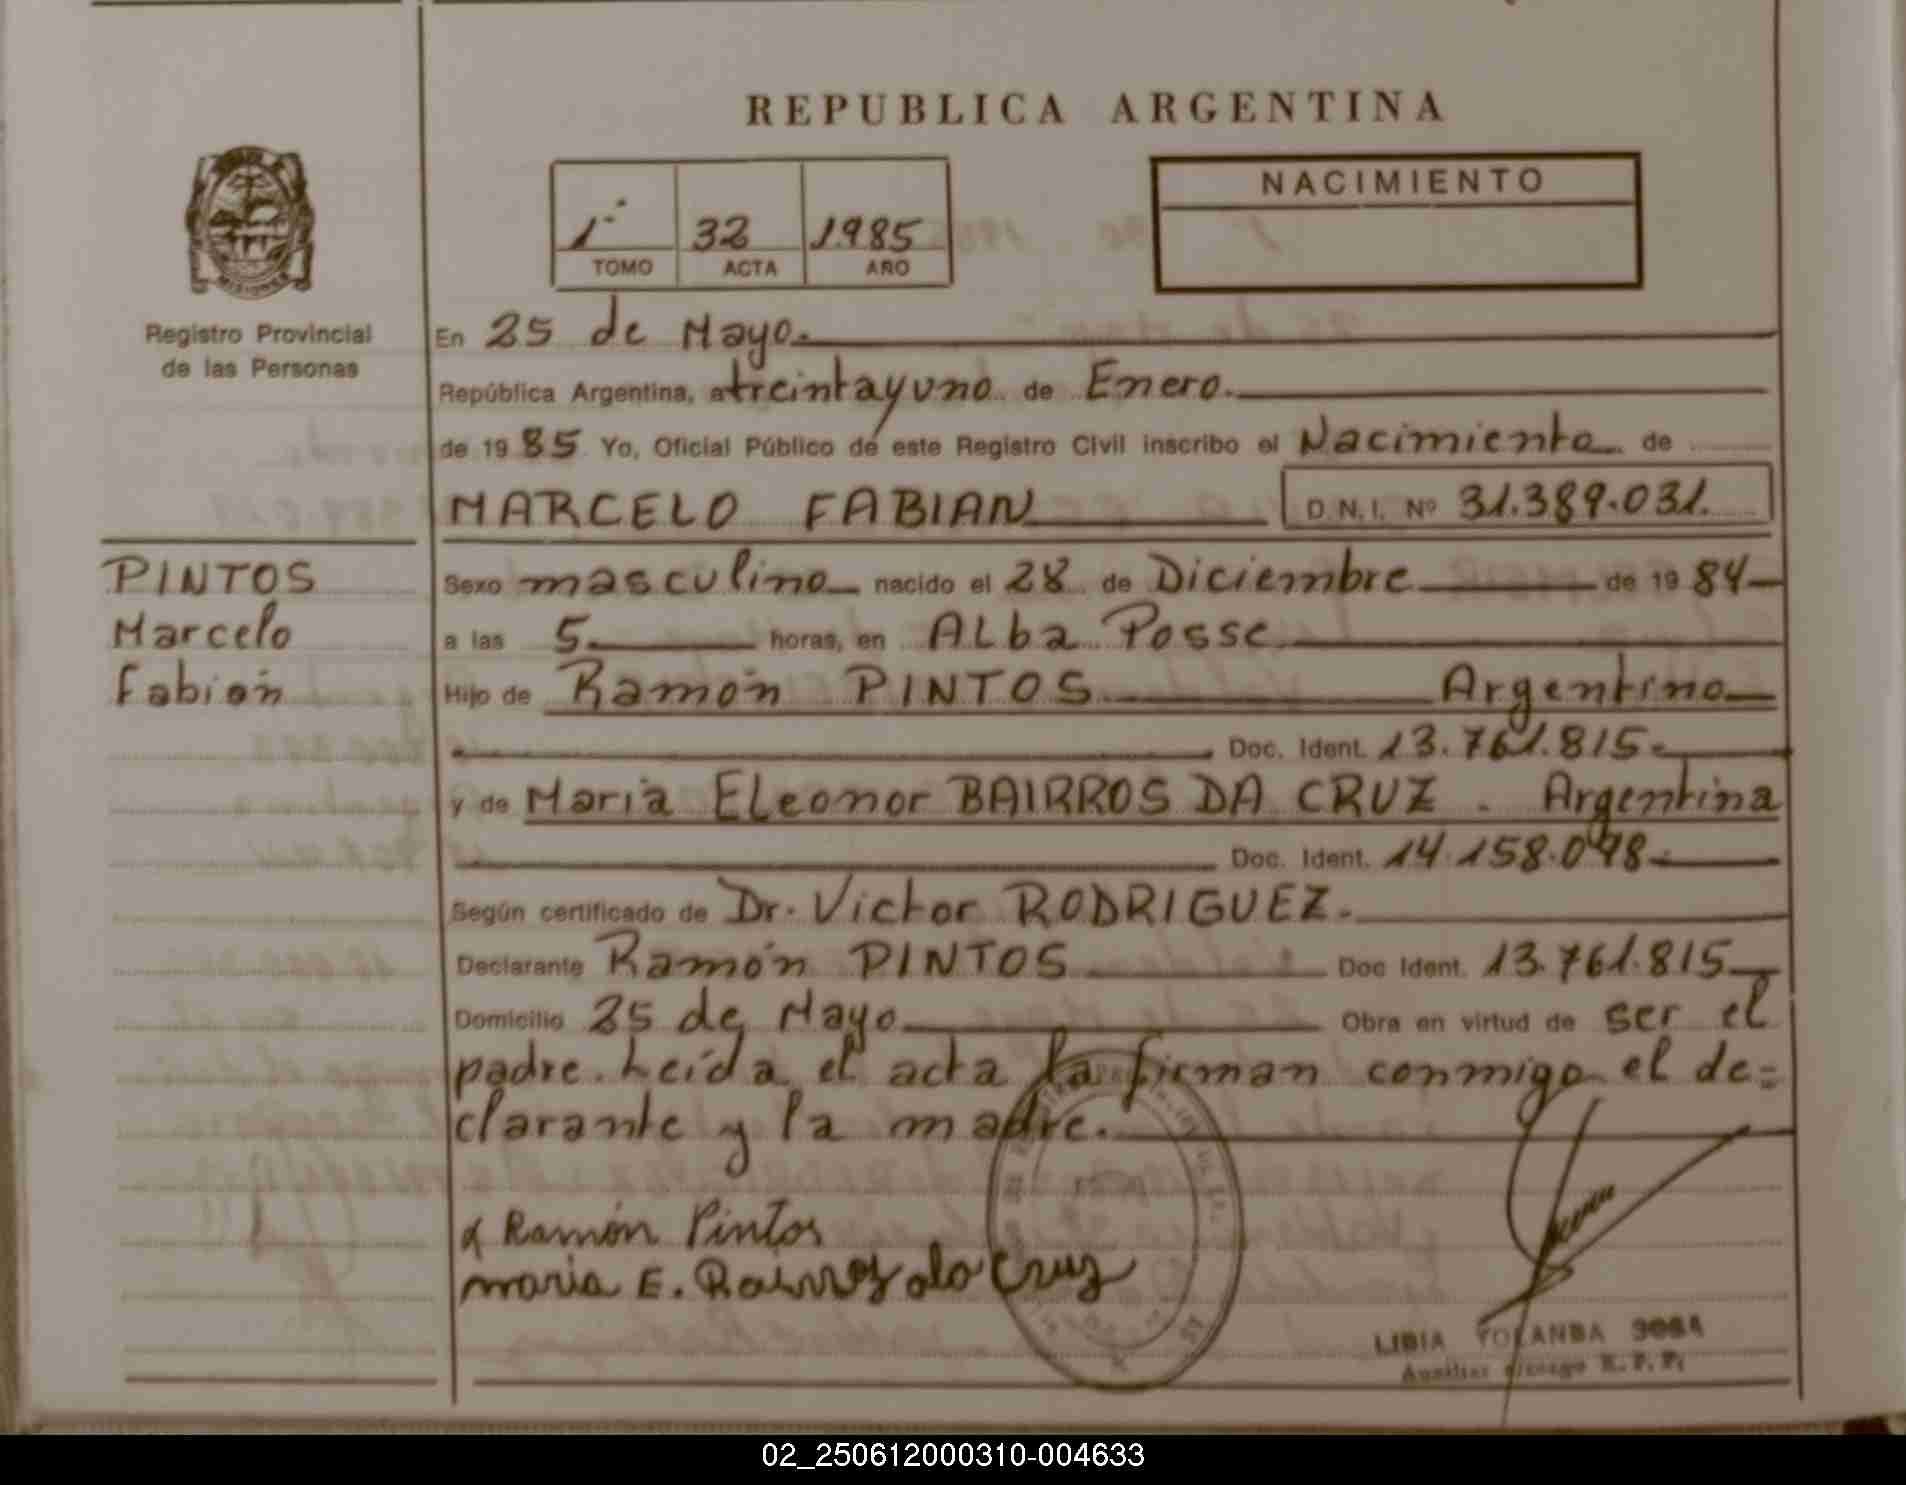 REPUBLICA ARGENTINA
MISIONES
Registro Provincial
de las Personas
1º 32 1985
TOMO ACTA AÑO
NACIMIENTO
En 25 de Mayo.
República Argentina, a treintayuno de Enero.
de 1985 Yo, Oficial Público de este Registro Civil inscribo el Nacimiento de
MARCELO FABIAN D.N.I. Nº 31.389.031.
PINTOS
Marcelo
Fabián
Sexo masculino nacido el 28 de Diciembre de 1984
a las 5 horas, en Alba Posse
Hijo de Ramón PINTOS Argentino
Doc. Ident. 13.761.815
y de Maria Eleonor BAIRROS DA CRUZ. Argentina
Doc. Ident. 14.158.098
Según certificado de Dr. Victor RODRIGUEZ.
Declarante Ramón PINTOS Doc Ident. 13.761.815
Domicilio 25 de Mayo Obra en virtud de ser el
padre. Leída el acta la firman conmigo el de=
clarante y la madre.
Ramón Pintos
maria E. Bairros da Cruz
LIBIA YOLANDA
02_250612000310-004633